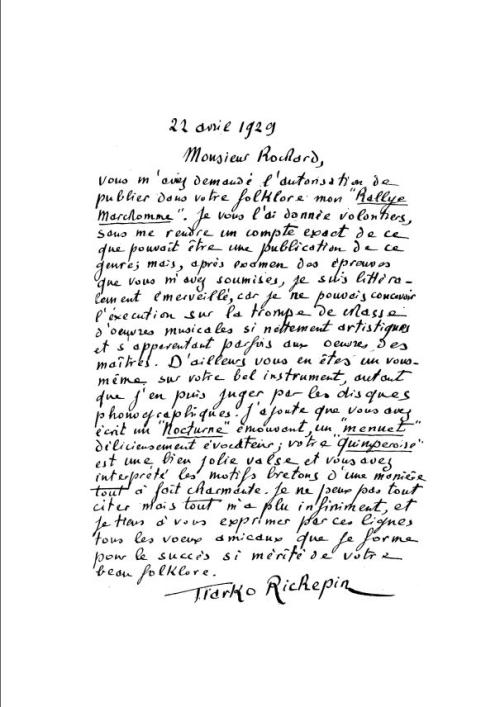 22 avril 1929
Monsieur Rochard,
vous m'avez demandé l'autorisation de
publier dans votre folklore mon "Rallye
Marchomme". Je vous l'ai donnée volontiers,
sans me rendre un compte exact de ce
que pouvait être une publication de ce
genre; mais, après examen des épreuves
que vous m'avez soumises, je suis littéra-
lement émerveillé, car je ne pouvais concevoir
l'exécution sur la trompe de chasse
d'oeuvres musicales si nettement artistiques
et s'apparentant parfois aux oeuvres des
maîtres. D'ailleurs vous en êtes un vous-
même sur votre bel instrument, autant
que j'en puis juger par les disques
phonographiques. J'ajoute que vous avez
écrit un "Nocturne" émouvant, un "menuet"
délicieusement évocateur; votre "Quimperoise"
est une bien jolie valse et vous avez
interprété les motifs bretons d'une manière
tout à fait charmante. Je ne peux pas tout
citer mais tout m'a plu infiniment, et
je tiens à vous exprimer par ces lignes
tous les voeux amicaux que je forme
pour le succès si mérité de votre
beau folklore.
Tiarko Richepin